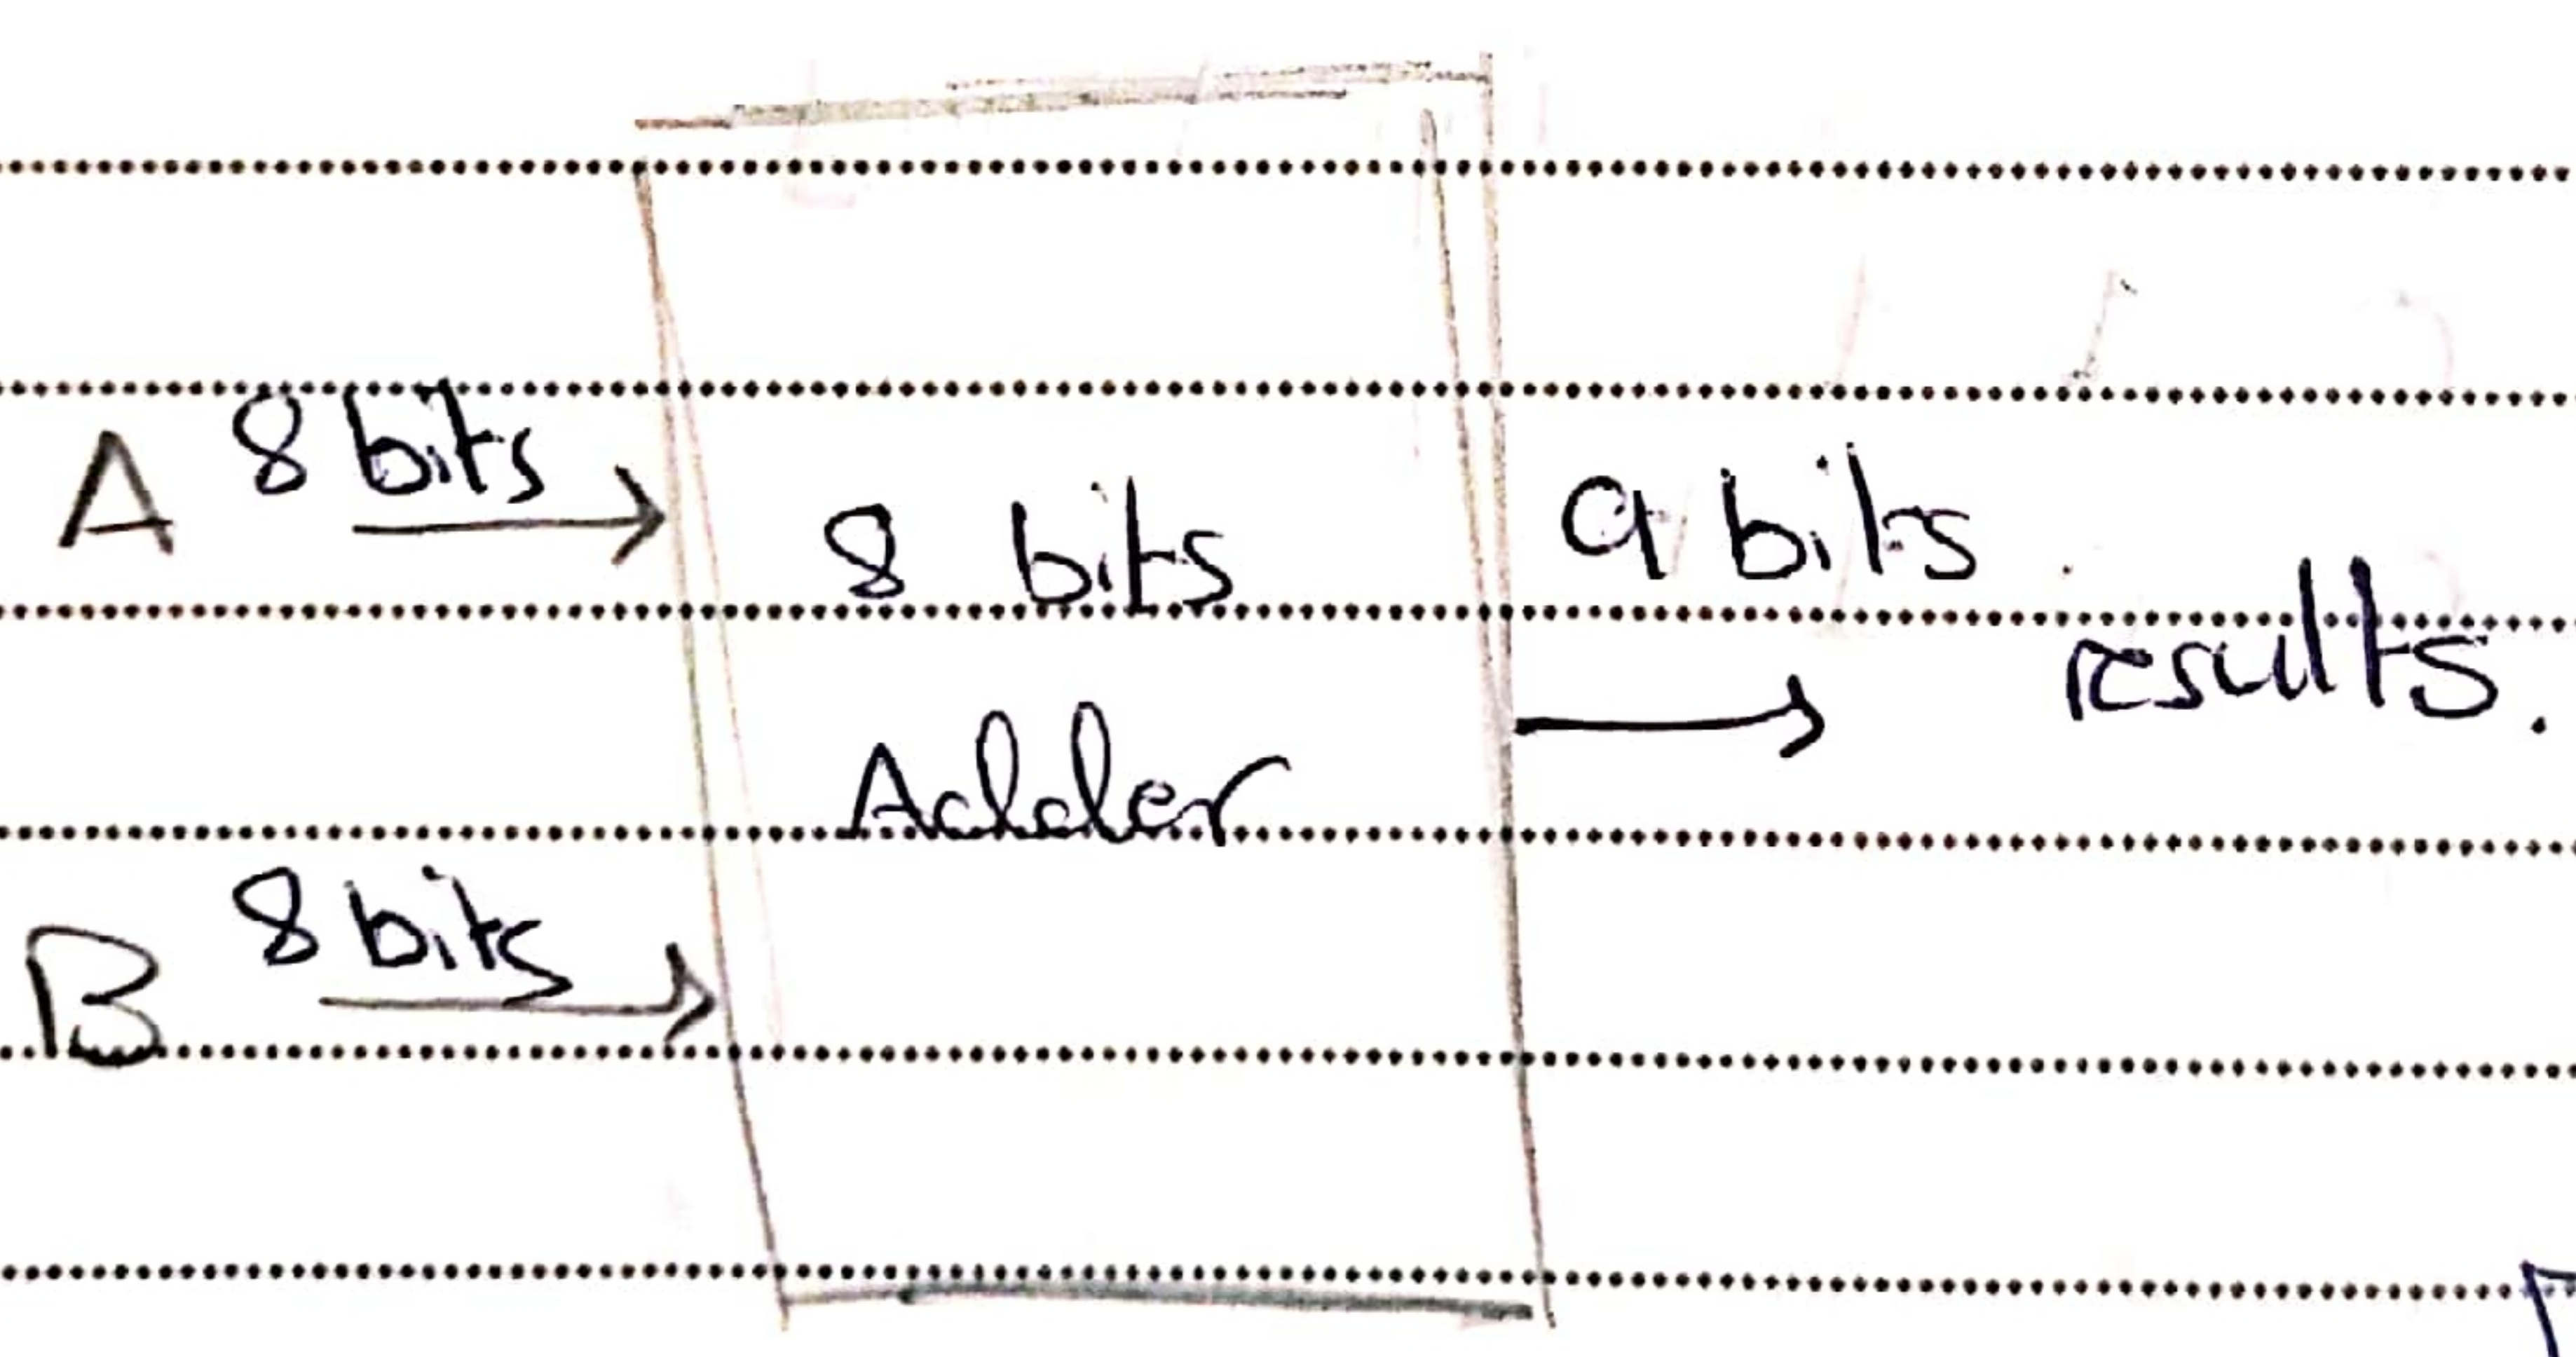 A 8 bits
8 bits
Adder
9 bits
results.
B 8 bits